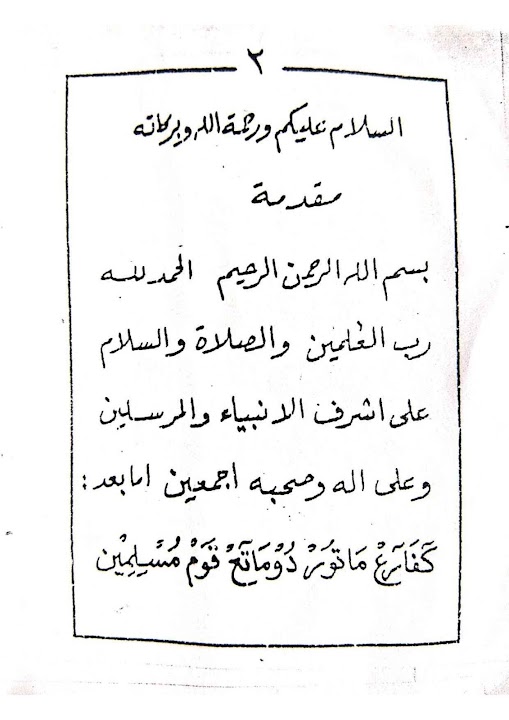 ٢
السلام عليكم ورحمة الله وبركاته
مقدمة
بسم الله الرحمن الرحيم الحمد لله
رب العٰلمين والصلاة والسلام
على اشرف الانبياء والمرسلين
وعلى اله وصحبه اجمعين اما بعد :
كَفَارَڠْ مَاتَوُرْ دُوْمَاتَڠْ قَوْمْ مُسْلِمِيْن